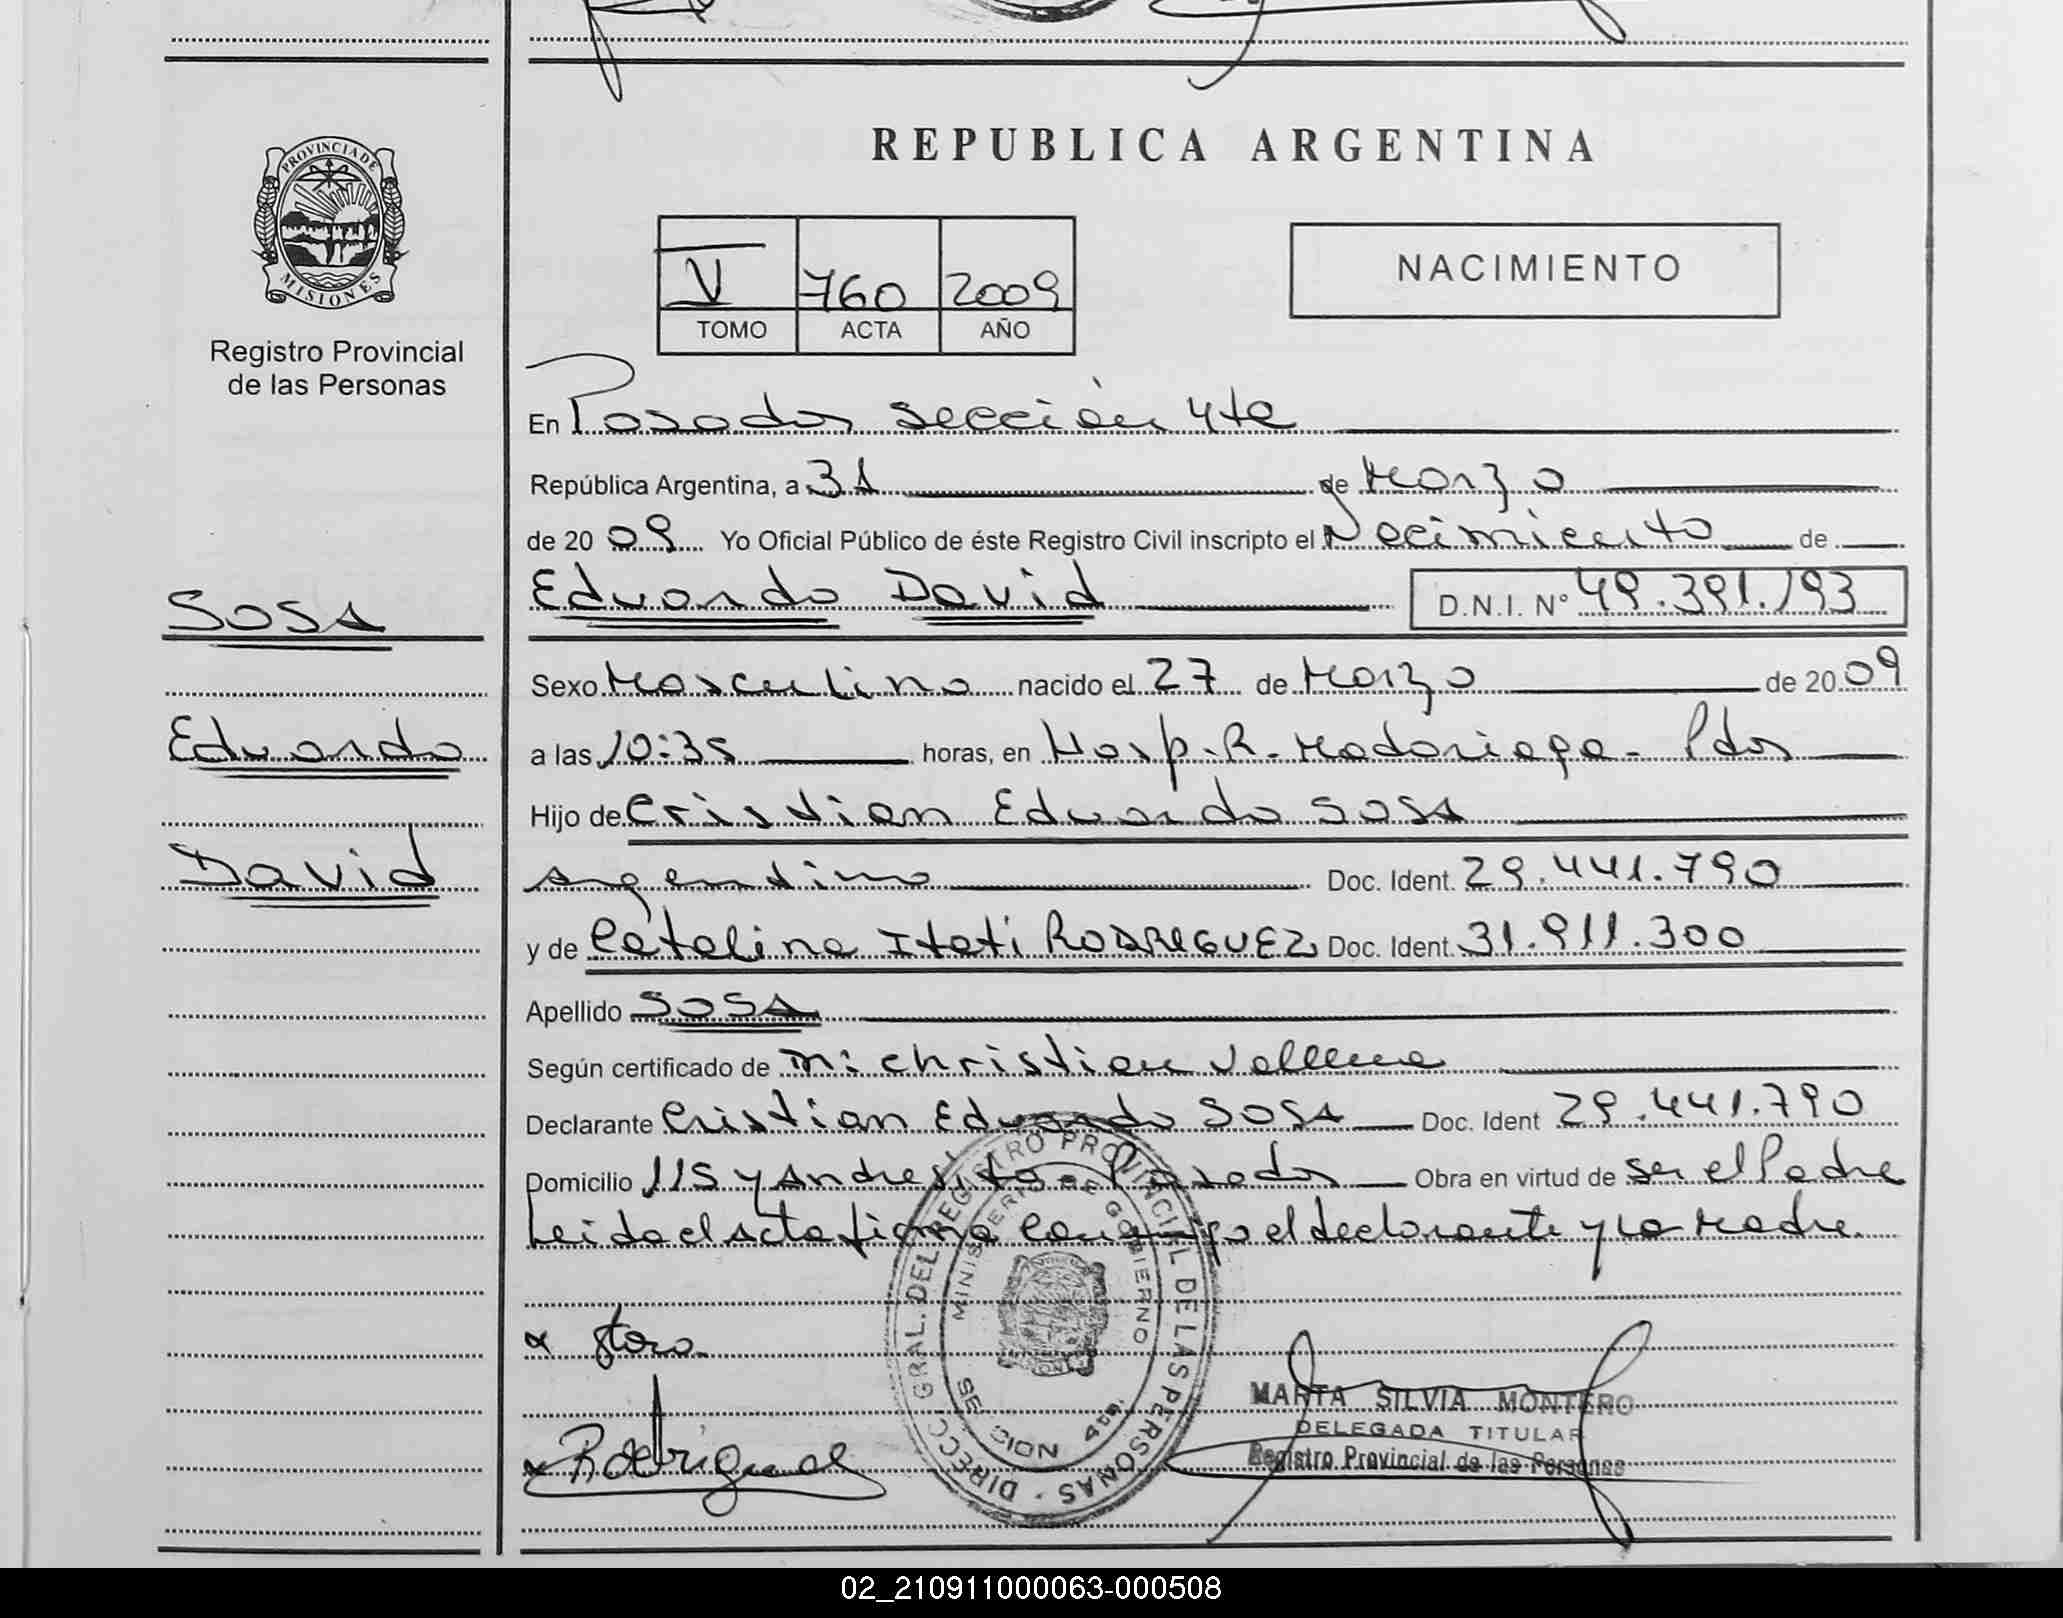 REPUBLICA ARGENTINA
PROVINCIA DE
MISIONES
Registro Provincial
de las Personas
V 760 2009
TOMO ACTA AÑO
NACIMIENTO
En Posadas sección 4ta
República Argentina, a 31 de Marzo
de 2009 Yo Oficial Público de éste Registro Civil inscripto el Nacimiento de
SOSA
Eduardo David D.N.I. N° 49.391.193
Sexo Masculino nacido el 27 de Marzo de 2009
Eduardo
a las 10:35 horas, en Hosp. R. Madariaga - Pdas
Hijo de Cristian Eduardo SOSA
David
Argentino Doc. Ident. 29.441.790
y de Catalina Itati RODRIGUEZ Doc. Ident. 31.911.300
Apellido SOSA
Según certificado de m: Christian
Declarante Cristian Eduardo SOSA Doc. Ident 29.441.790
Domicilio 115 y Andresito - Posadas Obra en virtud de ser el Padre
Leida el Acta firma conmigo el declarante y la Madre.
DIRECC. GRAL. DEL REGISTRO PROVINCIAL DE LAS PERSONAS
MINISTERIO DE GOBIERNO
SECCION 4ta
Rodriguez
MARTA SILVIA MONTERO
DELEGADA TITULAR
Registro Provincial de las Personas
02_210911000063-000508